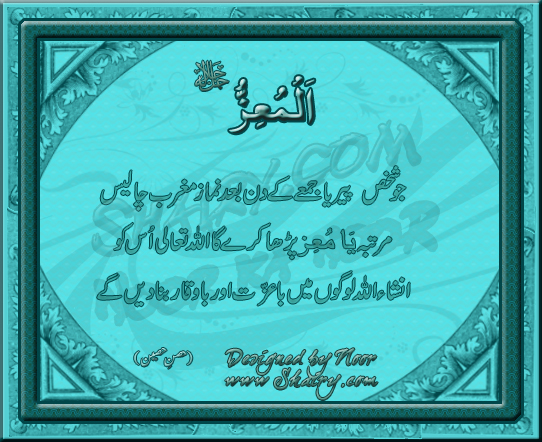 اَلْمُعِزُّ جل جلالہ
جو شخص پیر یا جمعے کے دن بعد نماز مغرب چالیس
مرتبہ یَا مُعِزُ پڑھا کرے گا اللہ تعالی اُس کو
انشاء اللہ لوگوں میں باعزّت اور باوقار بنا دیں گے
(حصن حصین)
Designed by Noor
www Shairy.com